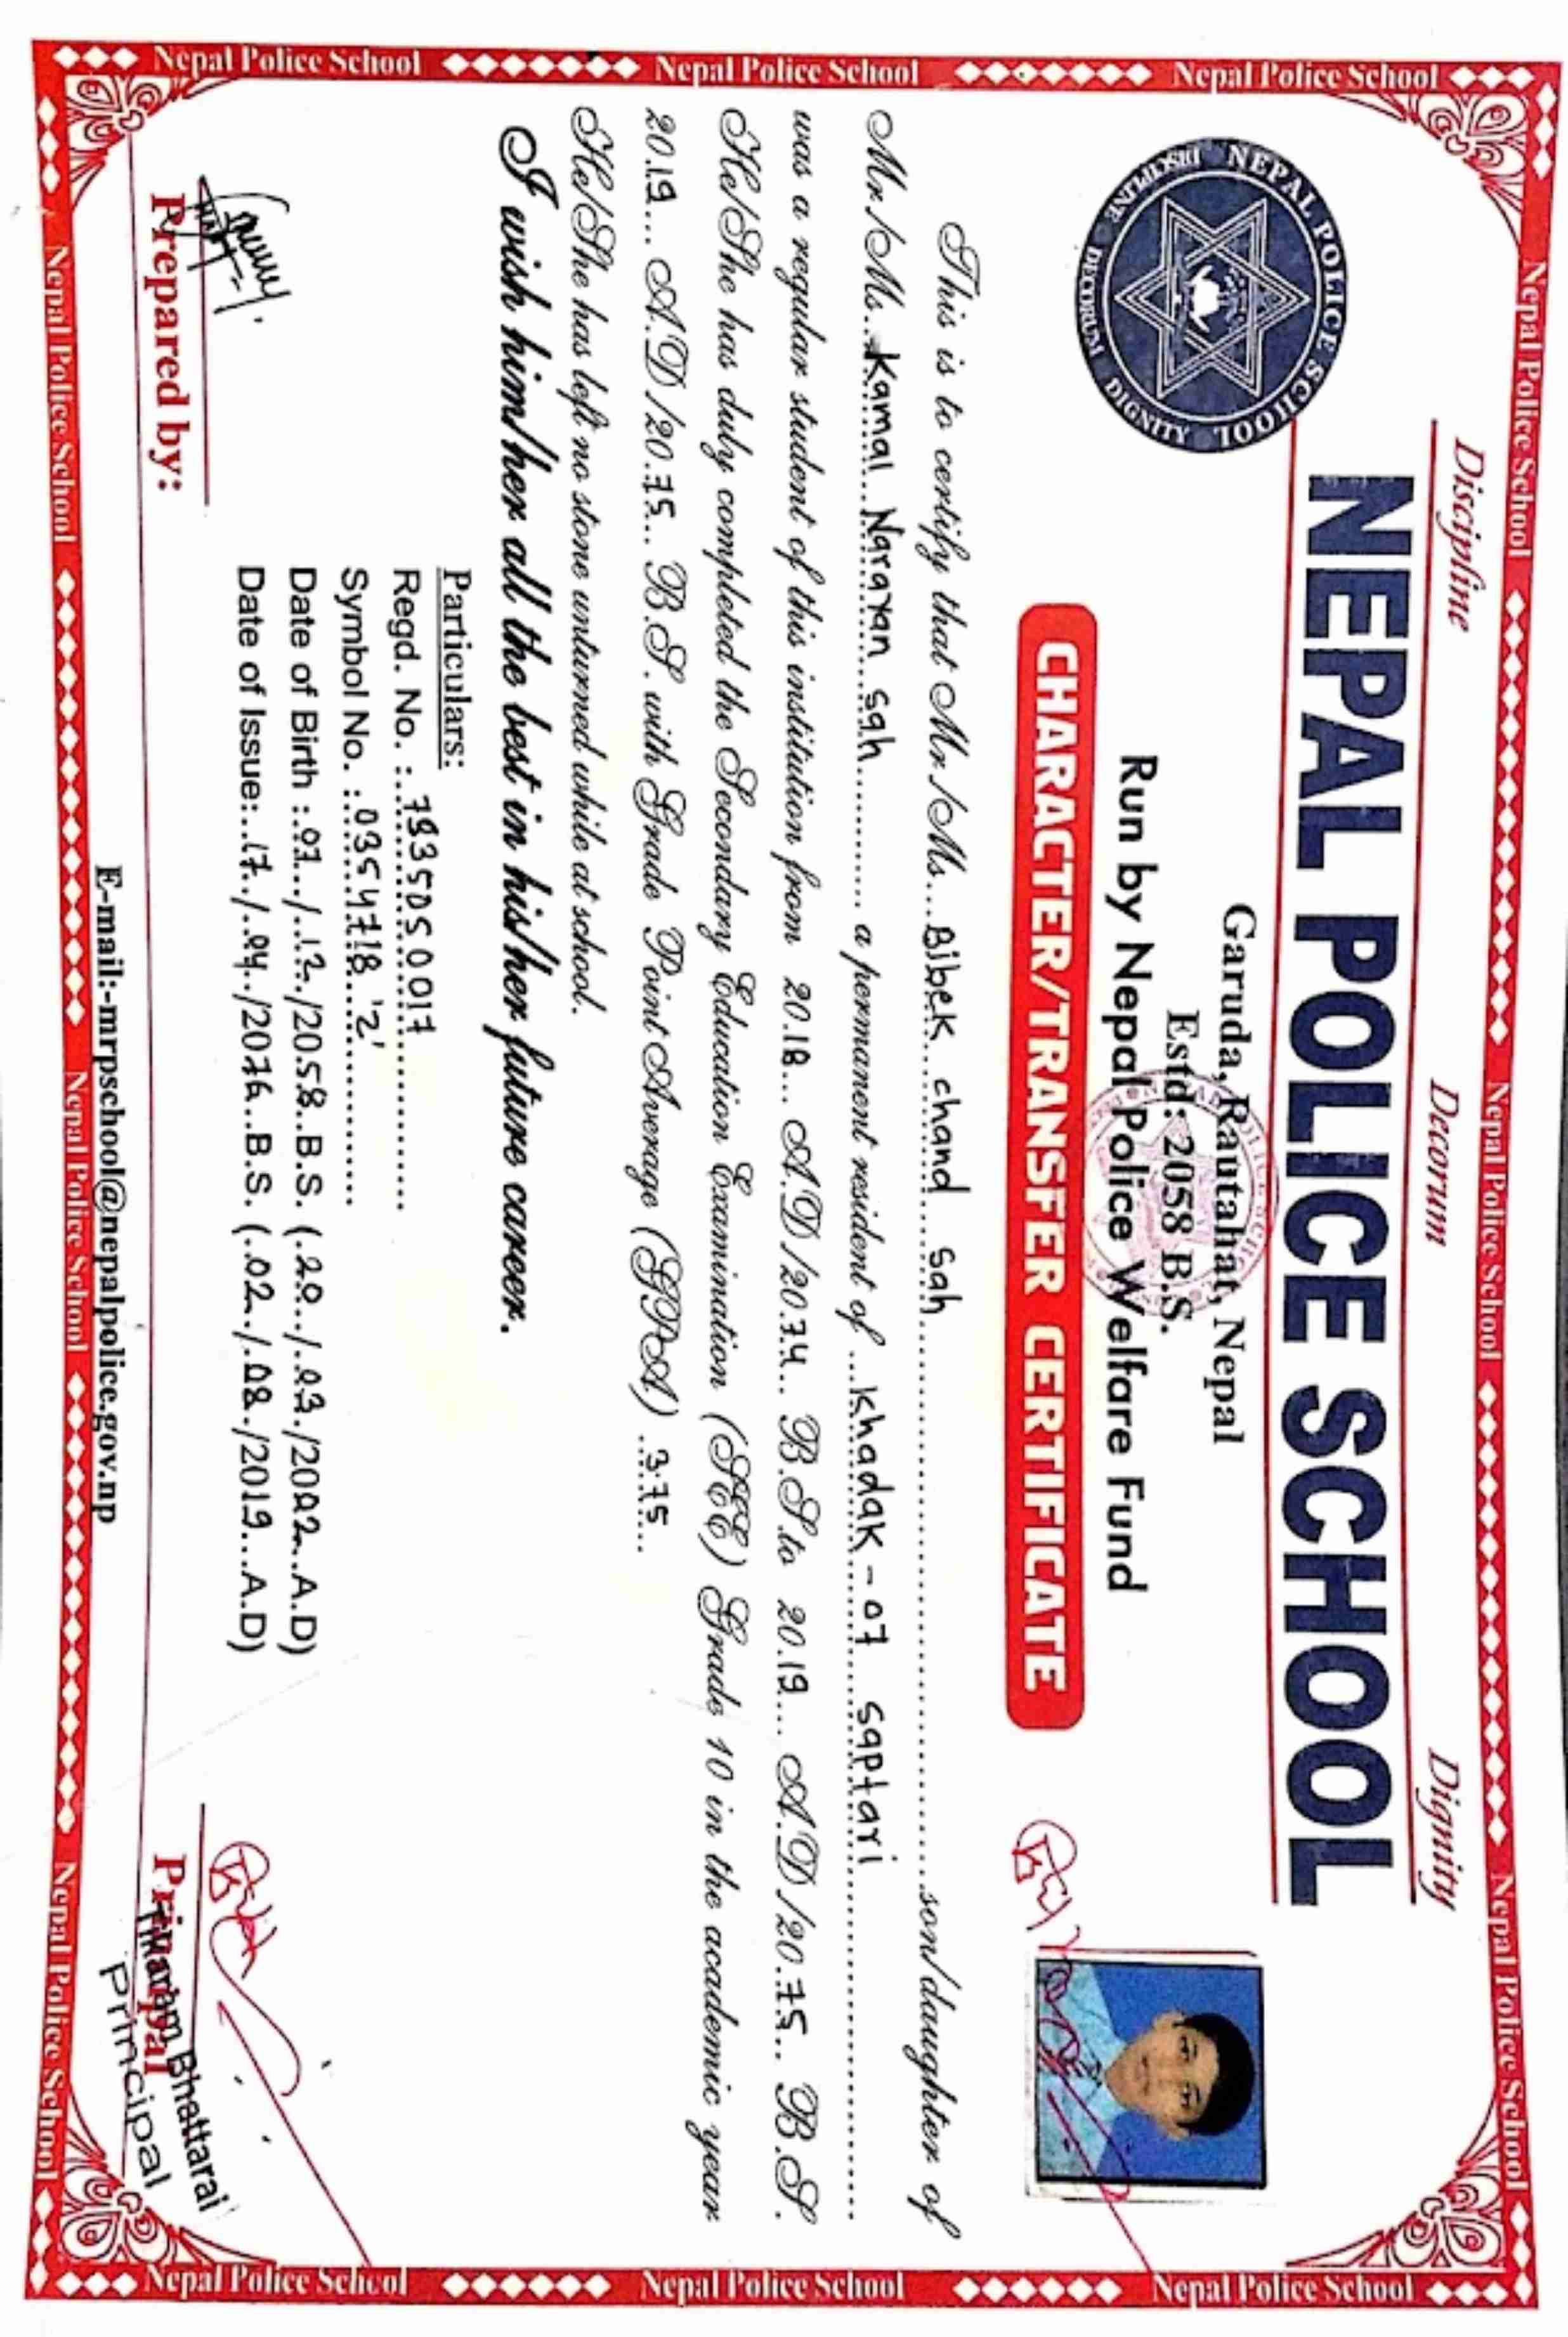 Nepal Police School Nepal Police School Nepal Police School Nepal Police School
Discipline Decorum Dignity
NEPAL POLICE SCHOOL
NEPAL POLICE SCHOOL
DISCIPLINE DECORUM DIGNITY
Garuda, Rautahat, Nepal
Estd: 2058 B.S.
Run by Nepal Police Welfare Fund
CHARACTER/TRANSFER CERTIFICATE
This is to certify that Mr./Ms....Bibek chand sah....son/daughter of
Mr./Ms...Kamal Narayan sah.......... a permanent resident of ...Khadak-07 saptari....
was a regular student of this institution from 20.18... A.D/20.74.. B.S.to 20.19... A.D/20.75.. B.S.
He/She has duly completed the Secondary Education Examination (SEE) Grade 10 in the academic year
20.19... A.D/20.75.. B.S. with Grade Point Average (GPA) ..3.75...
He/She has left no stone unturned while at school.
I wish him/her all the best in his/her future career.
Particulars:
Regd. No. :..7535050017............
Symbol No. :.0354718 'Z'............
Date of Birth :.07../..12./2058..B.S. (.20../.03./2002..A.D)
Date of Issue:..17../.04./2076..B.S. (.02../.08./2019...A.D)
Prepared by:
Principal
Tikaram Bhattarai
Principal
E-mail:-mrpschool@nepalpolice.gov.np
Nepal Police School Nepal Police School Nepal Police School Nepal Police School
Nepal Police School Nepal Police School Nepal Police School
Nepal Police School Nepal Police School Nepal Police School